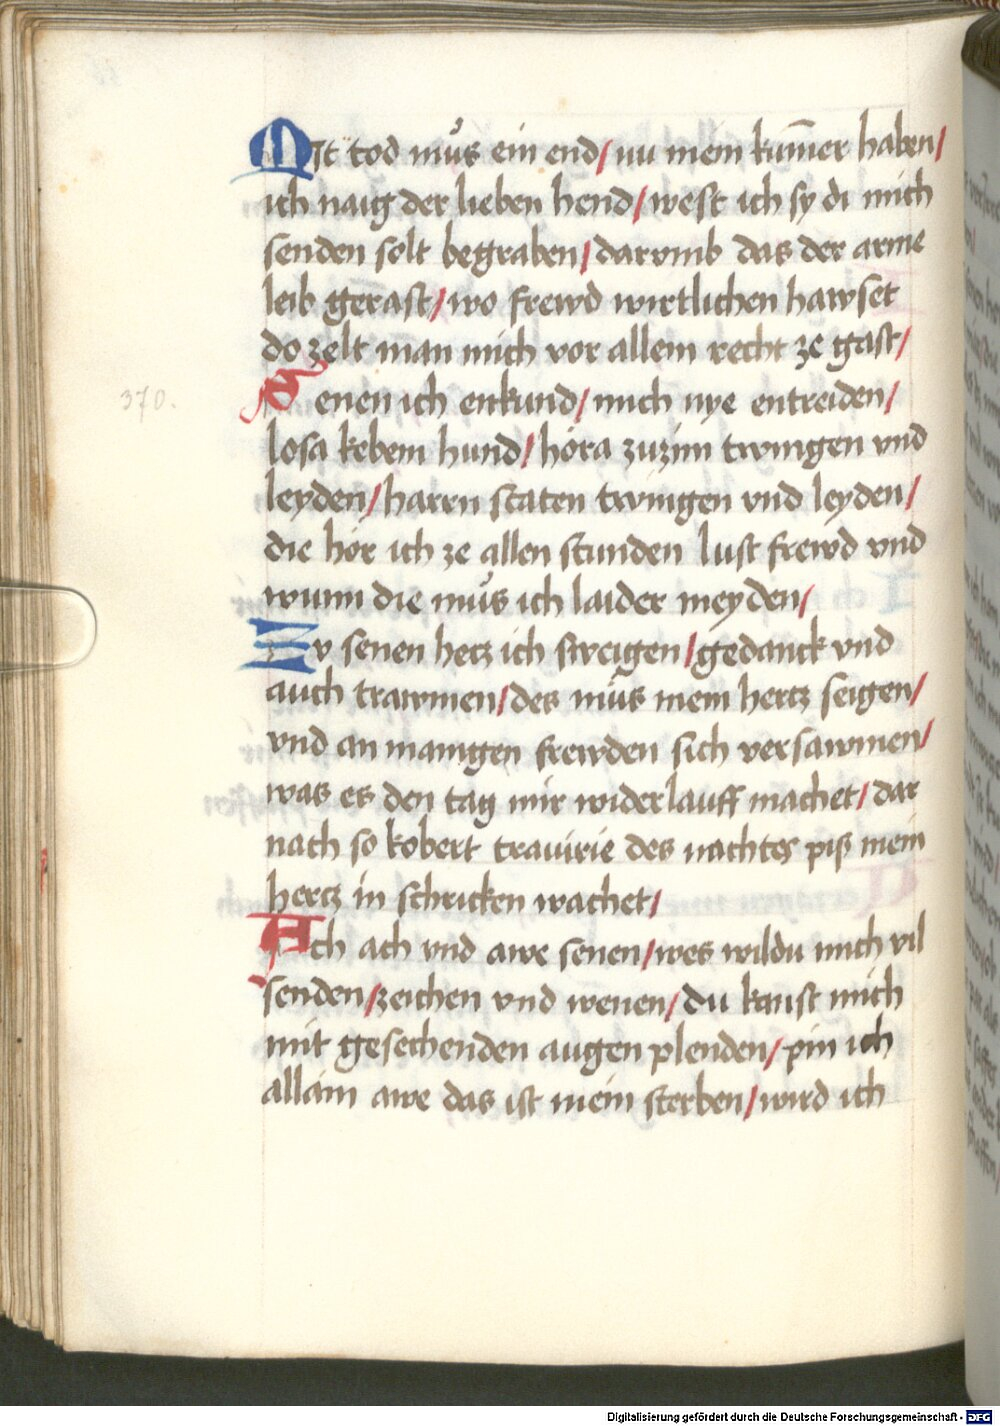 Mit tod mus̊ ein end / nu mein kum̄er haben /
ich naig der lieben hend / west ich sy di mich
senden solt begraben / darvmb das der arme
leib gerast / wo frewd wirtlichen hawset
do zelt man mich vor allem recht ze gast /
370.
Senen ich enkund / mich nye entreiden /
losa kebem hund / hora zuzim twingen vnd
leyden / harrn staten twingen vnd leyden /
die hör ich ze allen stunden lust frewd vnd
wunn die mus̊ ich laider meyden /
Zv senen herz ich sweigen / gedanck vnd
auch trawmen / des mus̊ mein hertz seigen /
vnd an manigen frewden sich versawmen /
was es den tag mir widerlauff machet / dar
nach so kobert trauirie des nachtes piß mein
hertz in schricken wachet /
Ach ach vnd awe senen / wes wildu mich vil
senden / zeichen vnd wenen / du kanst mich
mit gesechenden augen plenden / pin ich
allain awe das ist mein sterben / wird ich
Digitalisierung gefördert durch die Deutsche Forschungsgemeinschaft - DFG